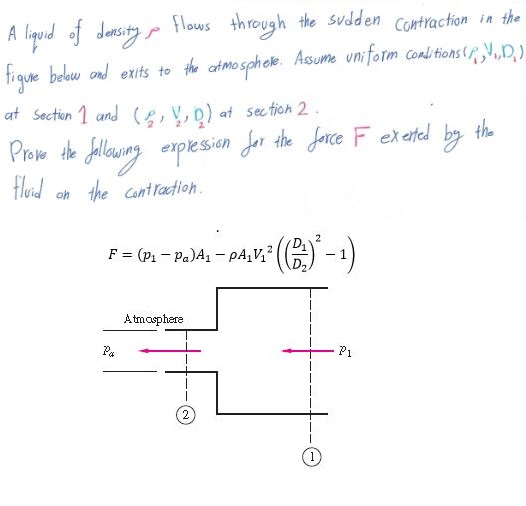 A liquid of density ρ flows through the sudden contraction in the
figure below and exits to the atmosphere. Assume uniform conditions (P₁, V₁, D₁)
at section 1 and (P₂, V₂, D₂) at section 2.
Prove the following expression for the force F exerted by the
fluid on the contraction.
F = (p₁ − pₐ)A₁ − ρA₁V₁² ((D₁/D₂)² − 1)
Atmosphere
Pₐ
P₁
2
1